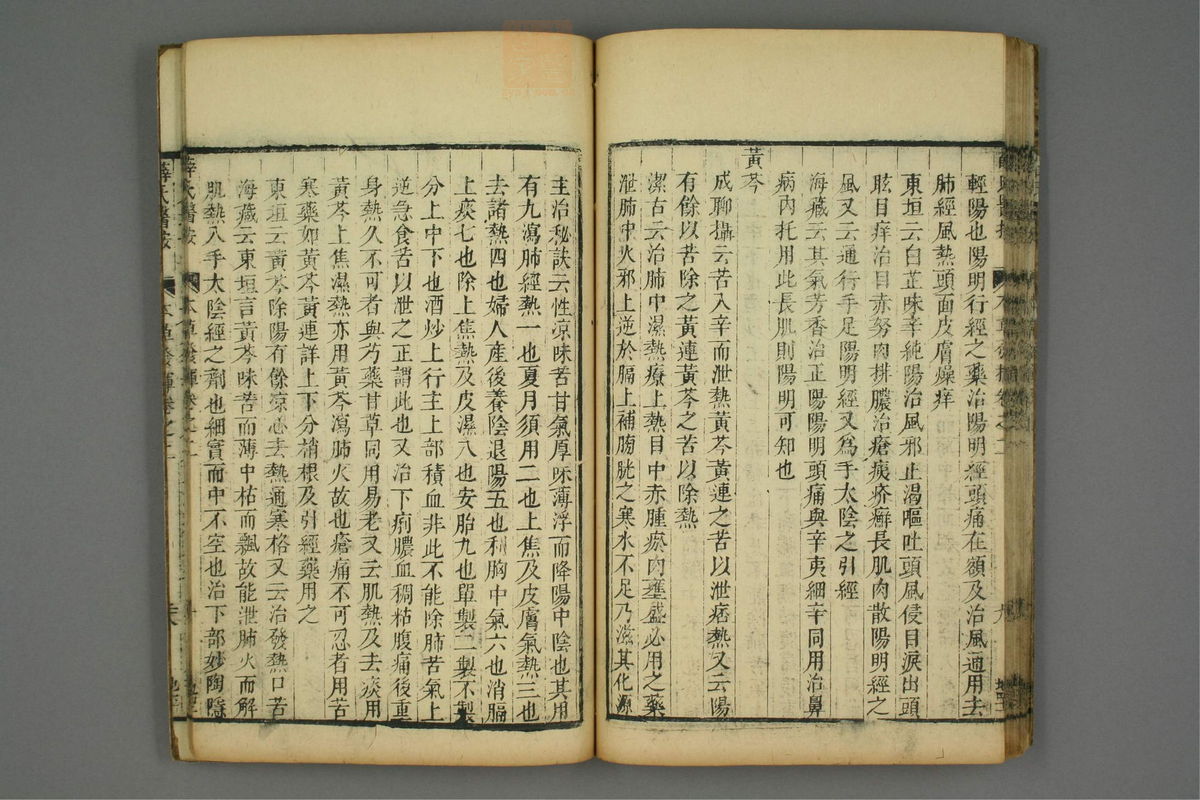 輕陽也陽明行經之藥治陽明經頭痛在額及治風通用去
肺經風熱頭面皮膚燥痒
東垣云白芷味辛純陽治風邪止渴嘔吐頭風侵目淚出頭
眩目痒治目赤努肉排膿治瘡痍疥癬長肌肉散陽明經之
風又云通行手足陽明經又為手太陰之引經
海藏云其氣芳香治正陽陽明頭痛與辛夷細辛同用治鼻
病內托用此長肌則陽明可知也
黃芩
成聊攝云苦入辛而泄熱黃芩黃連之苦以泄痞熱又云陽
有餘以苦除之黃連黃芩之苦以除熱
潔古云治肺中濕熱療上熱目中赤腫瘀肉壅盛必用之藥
泄肺中火邪上逆於膈上補膀胱之寒水不足乃滋其化源
主治秘訣云性凉味苦甘氣厚味薄浮而降陽中陰也其用
有九瀉肺經熱一也夏月須用二也上焦及皮膚氣熱三也
去諸熱四也婦人產後養陰退陽五也利胸中氣六也消膈
上痰七也除上焦熱及皮濕八也安胎九也單製二製不製
分上中下也酒炒上行主上部積血非此不能除肺苦氣上
逆急食苦以泄之正謂此也又治下痢膿血稠粘腹痛後重
身熱久不可者與芍藥甘草同用易老又云肌熱及去痰用
黃芩上焦濕熱亦用黃芩瀉肺火故也瘡痛不可忍者用苦
寒藥如黃芩黃連詳上下分梢根及引經藥用之
東垣云黃芩除陽有餘凉心去熱通寒格又云治發熱口苦
海藏云東垣言黃芩味苦而薄中枯而飄故能泄肺火而解
肌熱入手太陰經之劑也細實而中不空也治下部妙陶隱
薛氏醫按 本草發揮卷之二